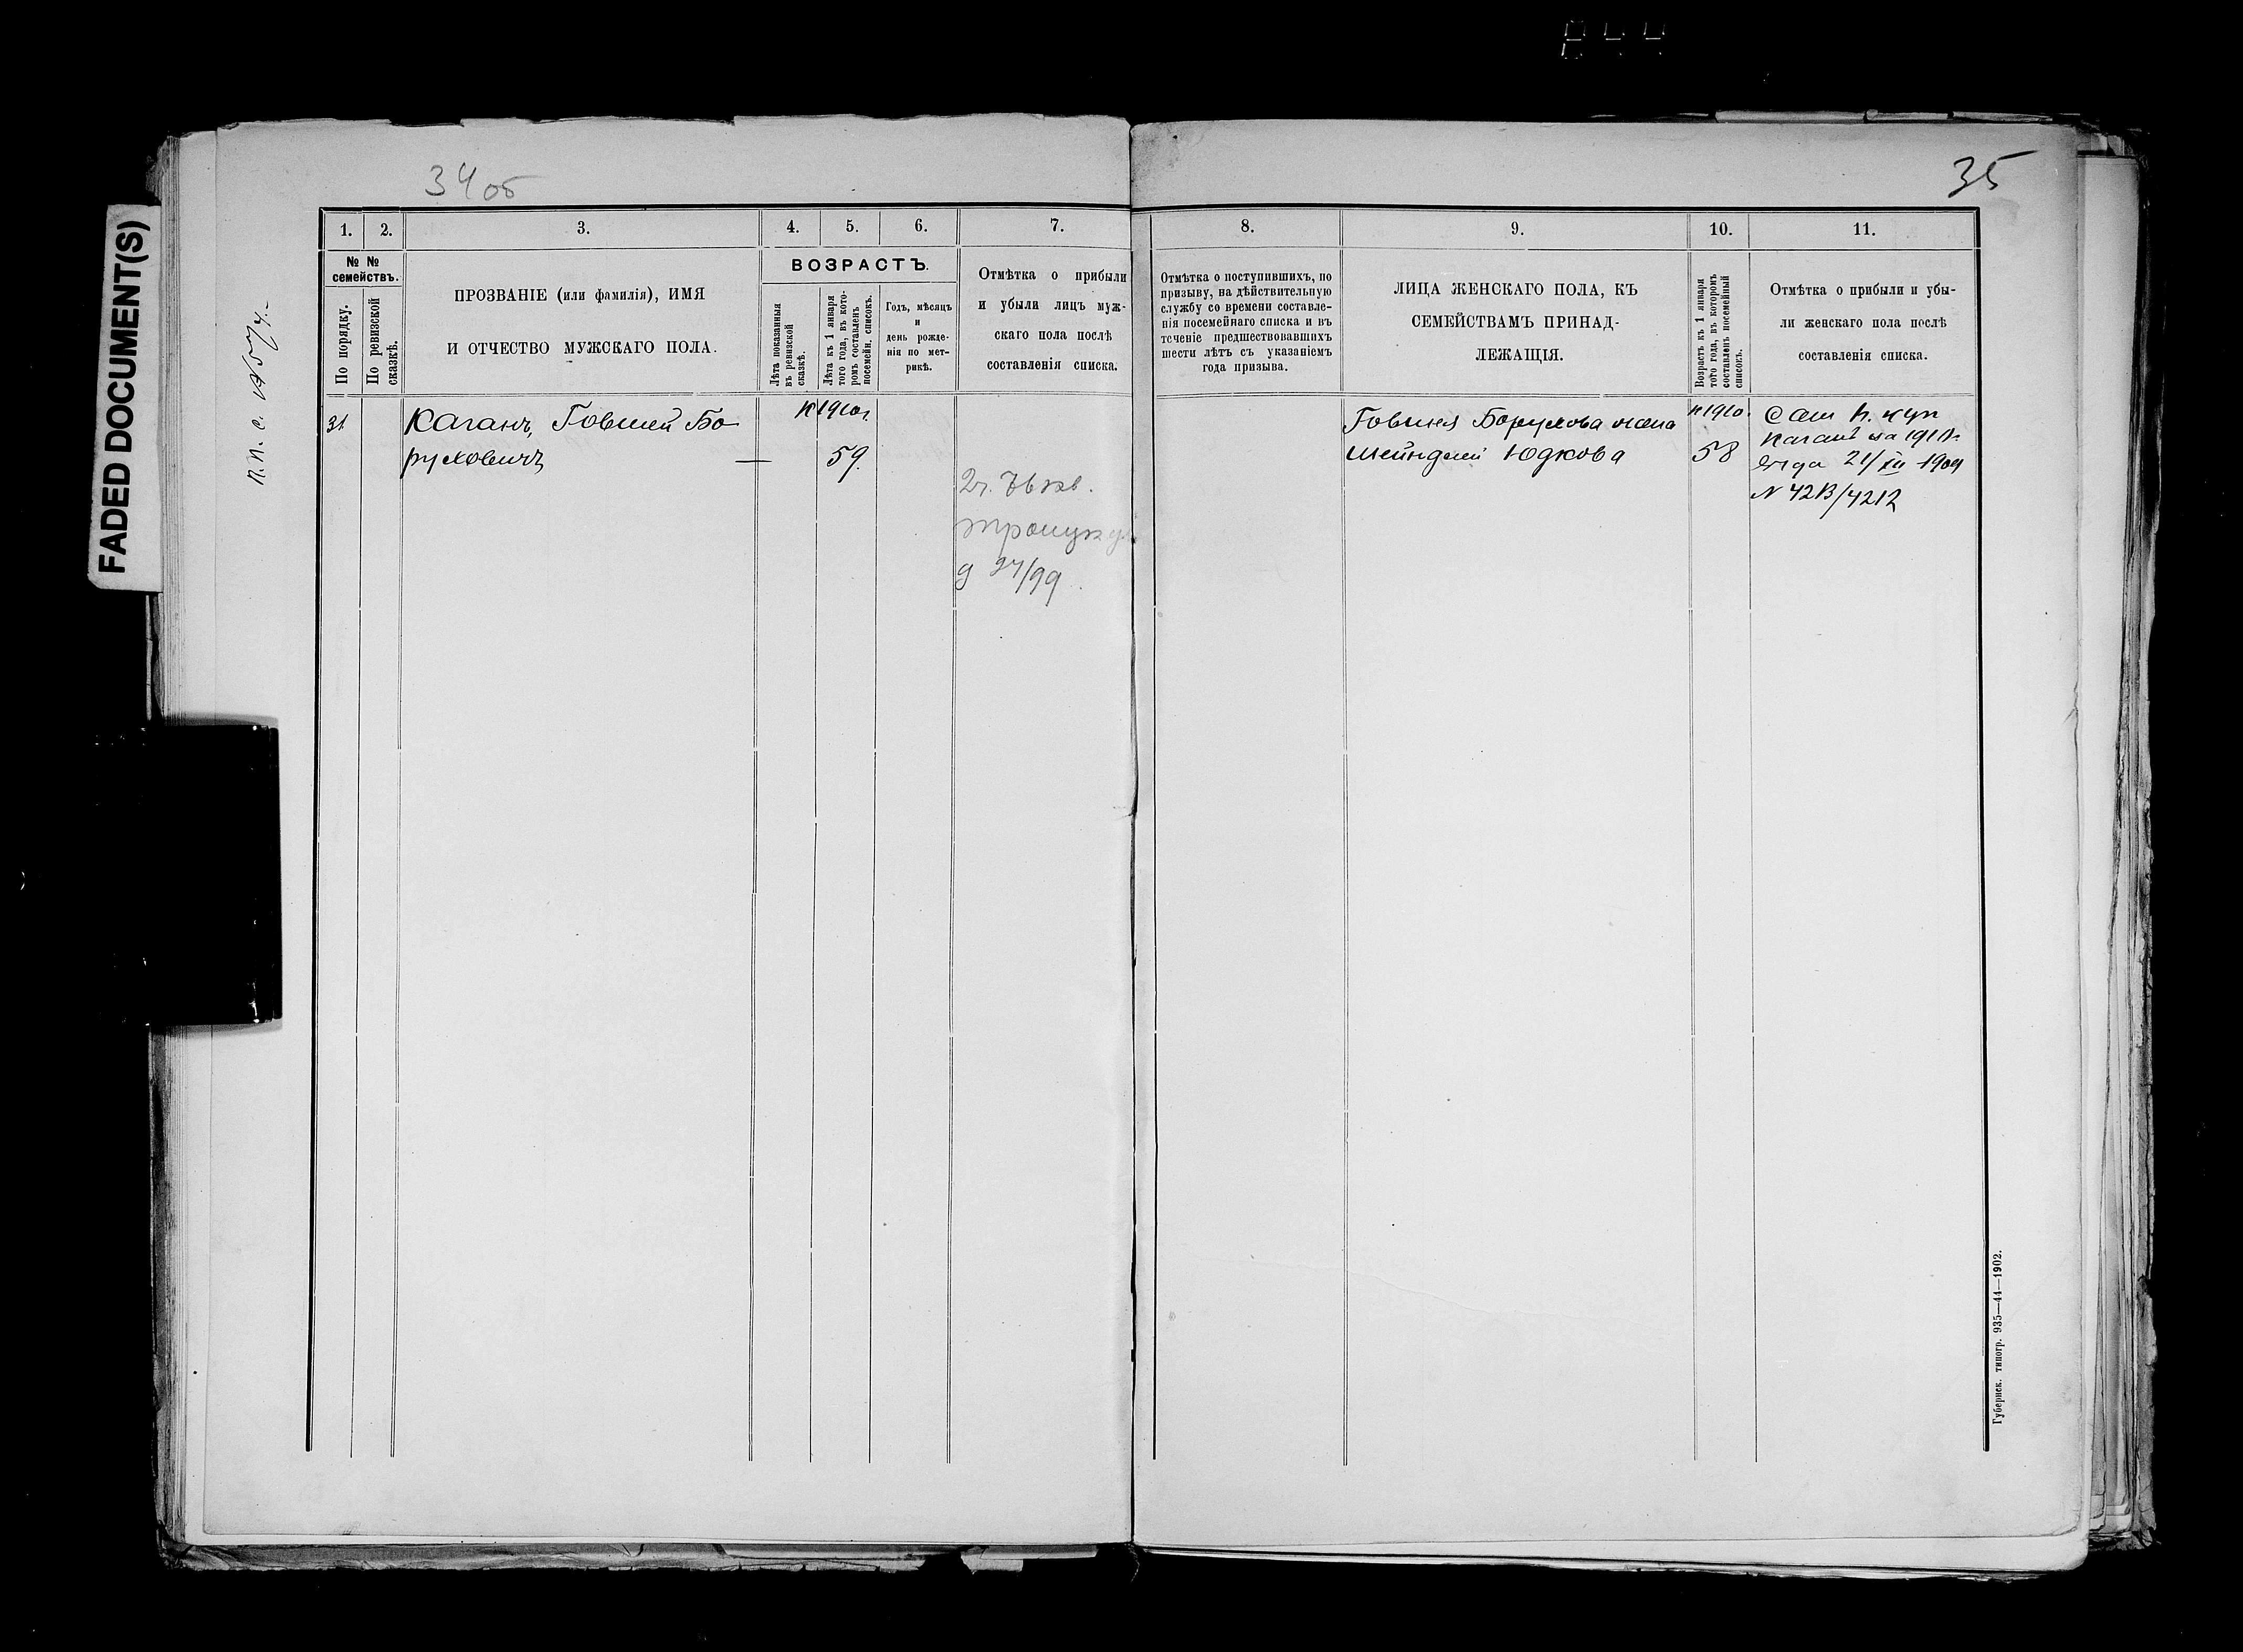 844
FADED DOCUMENT(S)
34 об
1.
2.
3.
4.
5.
6.
7.
№ №
семействъ.
По порядку.
По ревизской
сказкѣ.
ПРОЗВАНІЕ (или фамилія), ИМЯ
И ОТЧЕСТВО МУЖСКАГО ПОЛА.
ВОЗРАСТЪ.
Лѣта показанныя
въ ревизской
сказкѣ.
Лѣта къ 1 января
того года, въ кото-
ромъ составленъ
посемейн. списокъ.
Годъ, мѣсяцъ
и
день рожде-
нія по мет-
рикѣ.
Отмѣтка о прибыли
и убыли лицъ муж-
скаго пола послѣ
составленія списка.
31
Каганъ, Говшей Бо-
руховичъ —
к 1910 г.
59.
2 г.
27/99
35
8.
9.
10.
11.
Отмѣтка о поступившихъ, по
призыву, на дѣйствительную
службу со времени составле-
нія посемейнаго списка и въ
теченіе предшествовавшихъ
шести лѣтъ съ указаніемъ
года призыва.
ЛИЦА ЖЕНСКАГО ПОЛА, КЪ
СЕМЕЙСТВАМЪ ПРИНАД-
ЛЕЖАЩІЯ.
Возрастъ къ 1 января
того года, въ которомъ
составленъ посемейный
списокъ.
Отмѣтка о прибыли и убы-
ли женскаго пола послѣ
составленія списка.
Борухова жена
Шейндлей Юдкова
к 1910.
58
куп
на 1910
21/XII 1909
N 4213/4212
Губернск. типогр. 935—44—1902.